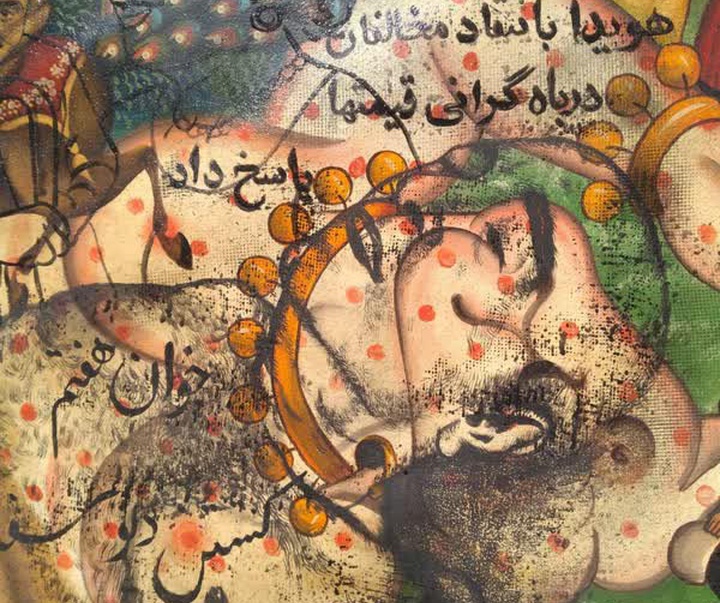 هویدا بانتقاد مخالفان
درباه گرانی قیمتها
پاسخ داد
خوان هفتم
کشتن دیو سفید